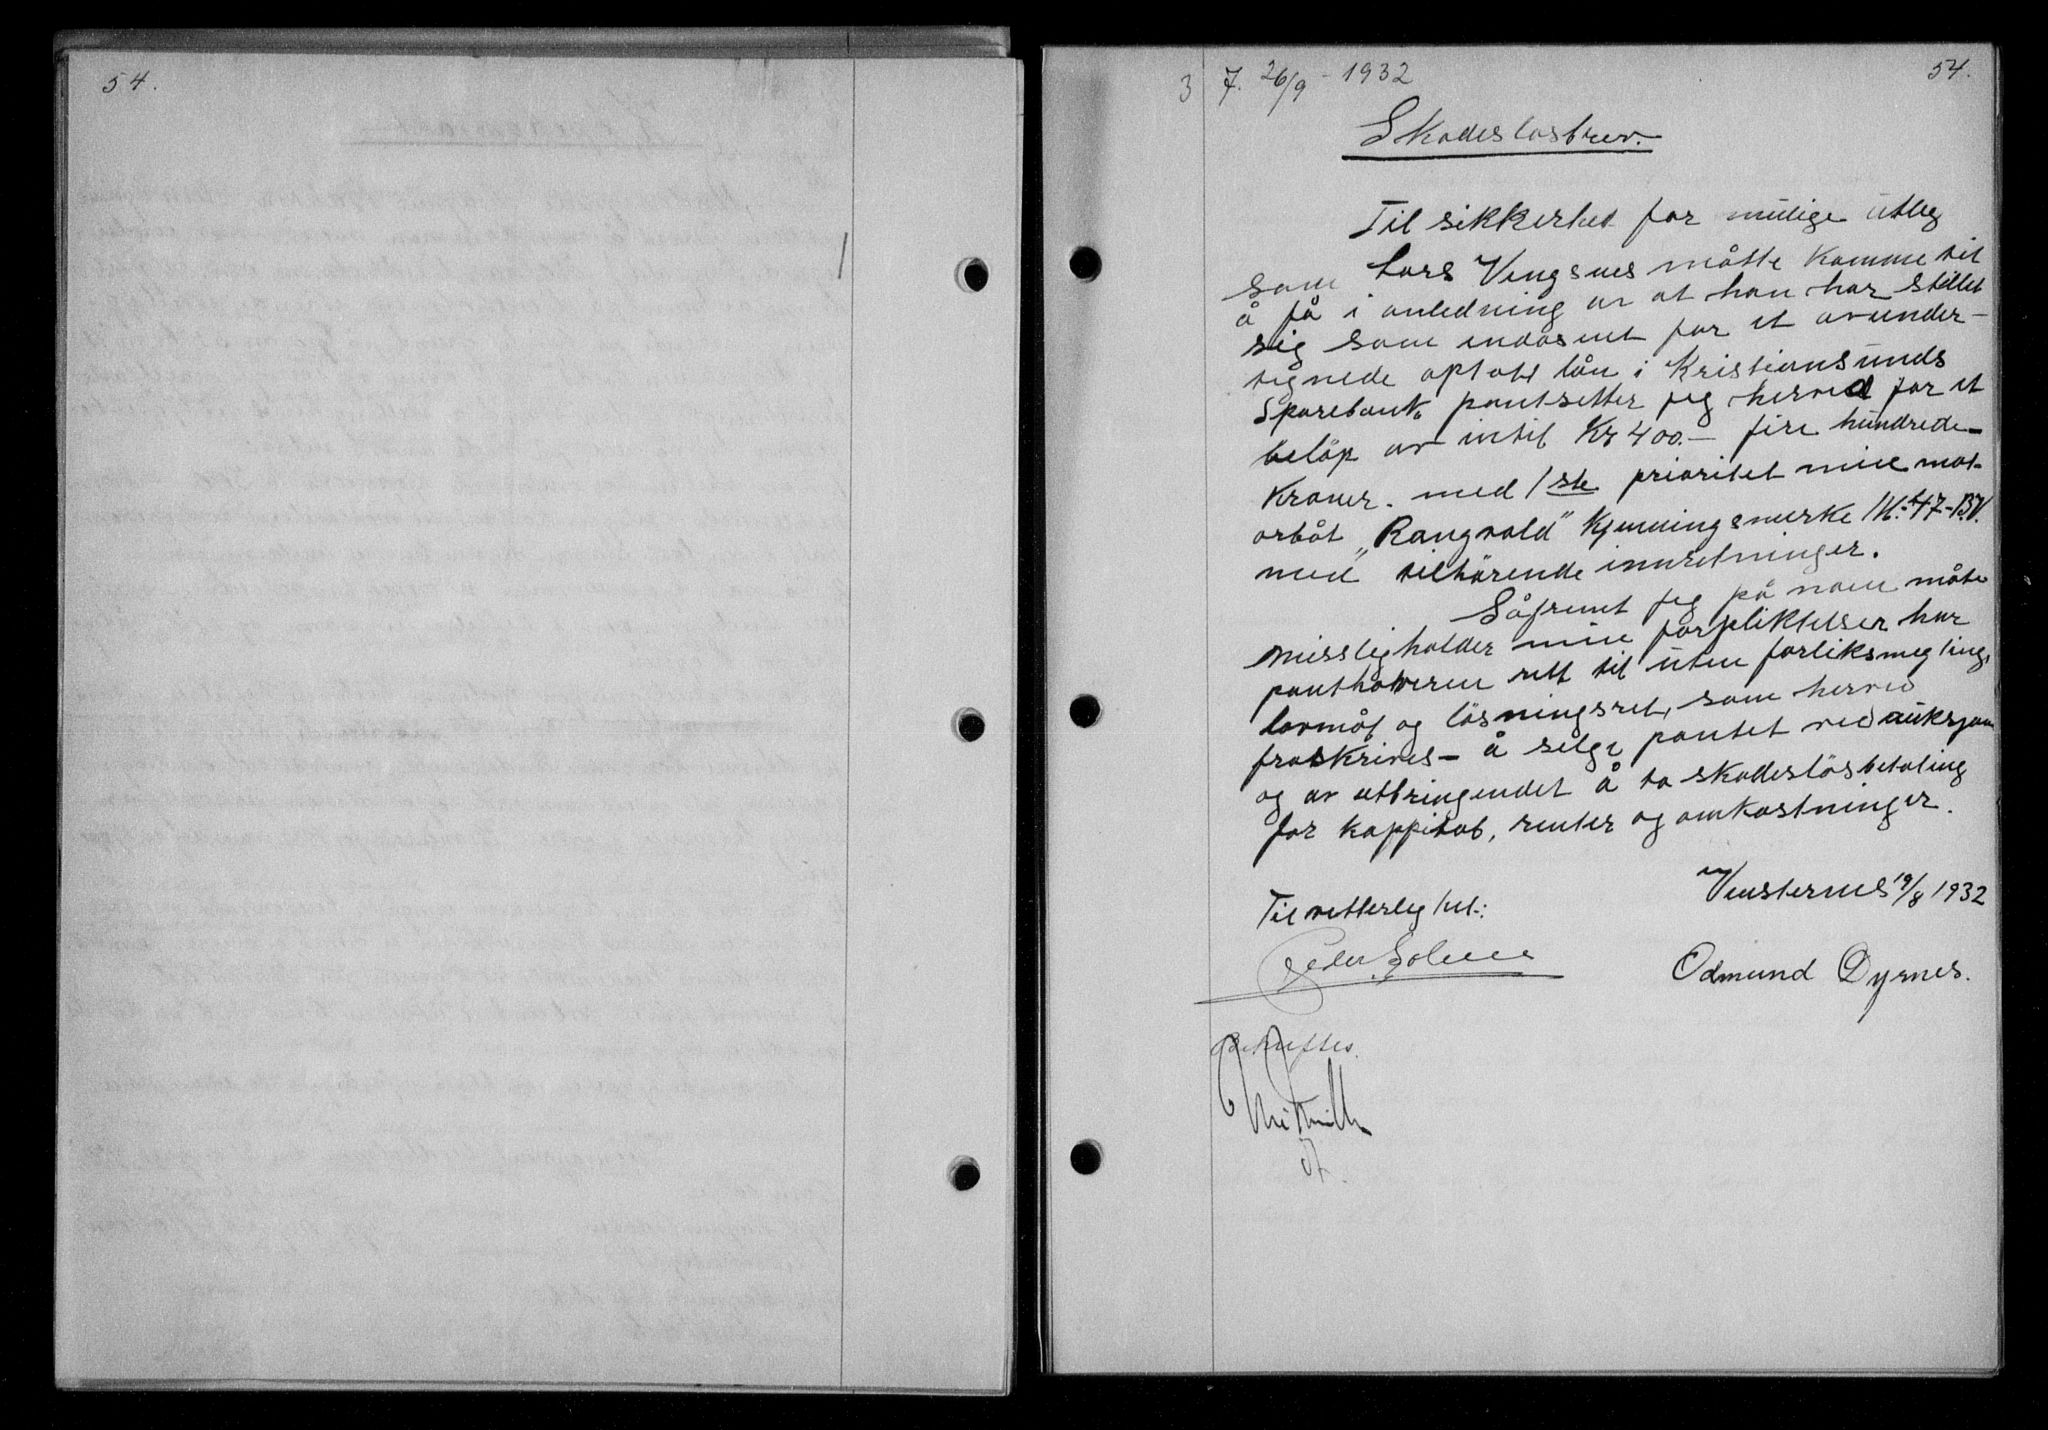 54.
3 7. 26/9 - 1932 54.
Skadeslosbrev.
Til sikkerhet for mulige utleg
som Lars Vengsnes måtte komme til
å få i anledning av at han har stillet
sig som endosent for et avunder-
tegnede optatt lån i Kristiansunds
Sparebank pantsetter jeg herved for et
beløp av intil Kr 400.- fire hundrede
Kroner. med 1ste prioritet min mot-
orbåt "Rangvald" kjenningsmerke M.-47-BV.
med tilhørende innretninger.
Såfremt jeg på noen måte
missligholder mine forpliktelser har
panthaveren rett til uten forliksmegling,
lovmål og løsningsret, som herved
fraskrives - å selge pantet ved auksjon
og av utbringendet å ta skadesløsbetaling
for kappital, renter og omkostninger.
Veusternes 19/8 1932
Til vitterlighet:
Peder Solem
Odmund Dyrnes.
Bekreftes.